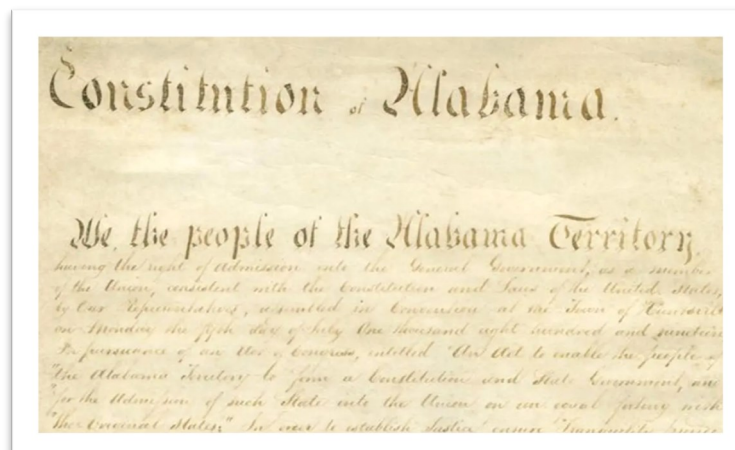 Constitution of Alabama.
We, the people of the Alabama Territory,
having the right of Admission into the General Government, as a member
of the Union, consistent with the Constitution and Laws of the United States,
by Our Representatives, assembled in Convention at the Town of
on Monday the fifth day of July One thousand eight hundred and nineteen
In pursuance of an Act of Congress, entitled "An Act to enable the people of
"the Alabama Territory to form a Constitution and State Government, and
"for the Admission of such State into the Union on an equal footing with
"the Original States;" In order to establish Justice ensure Tranquility